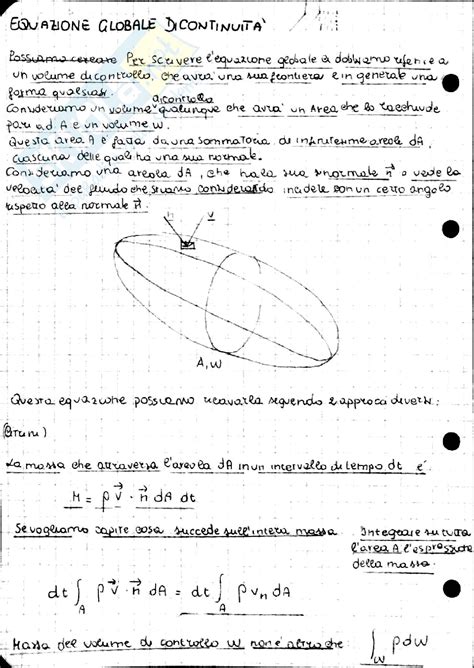 EQUAZIONE GLOBALE DI CONTINUITA'
Possiamo cercare Per scrivere l'equazione globale ci dobbiamo riferire a
un volume di controllo, che avrà una sua frontiera e in generale una
forma qualsiasi
di controllo
Consideriamo un volume qualunque che avrà un area che lo racchiude
pari ad A e un volume W.
Questa area A è fatta da una sommatoria di infinitesime areole dA,
ciascuna delle quali ha una sua normale.
Consideriamo una areola dA, che ha la sua normale n⃗ e vede la
velocità del fluido che stiamo considerando incidere con un certo angolo
rispetto alla normale n⃗.
n v
A, W
Questa equazione possiamo ricavarla seguendo 2 approcci diversi:
La massa che attraversa l'areola dA in un intervallo di tempo dt è
M = ρ v⃗ · n⃗ dA dt
Se vogliamo capire cosa succede sull'intera massa Integrare su tutta
l'area A l'espressione
della massa.
dt ∫_A ρ v⃗ · n⃗ dA = dt ∫_A ρ v_n dA
Massa del volume di controllo W non è altro che: ∫_W ρ dW